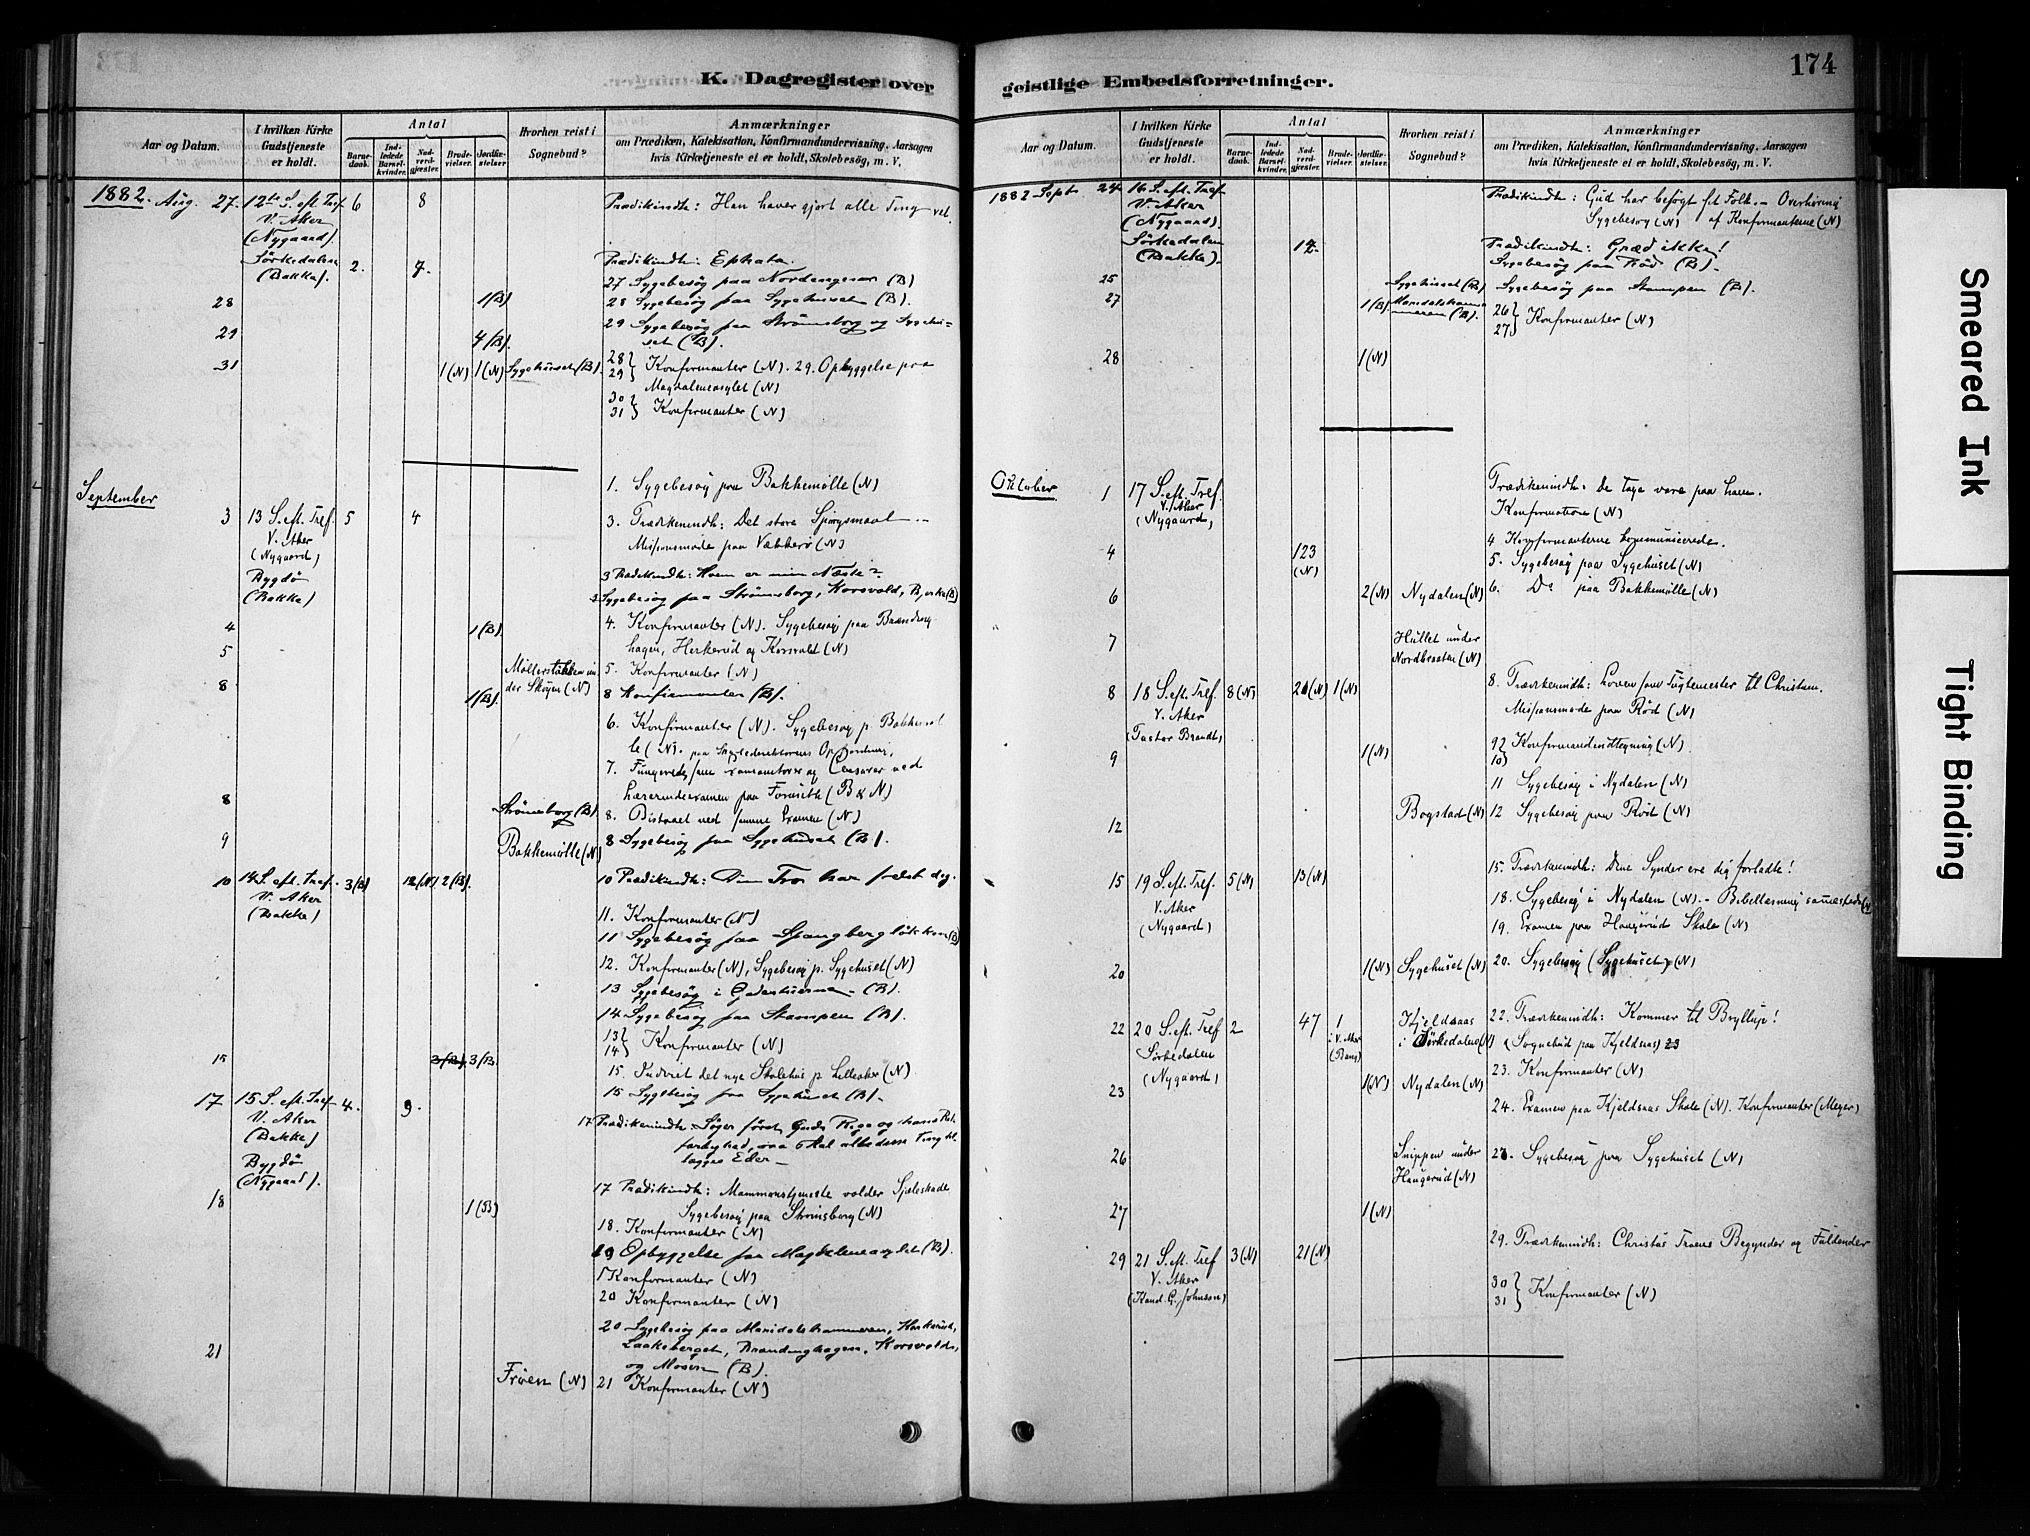 K. Dagregister over
Aar og Datum.
I hvilken Kirke Gudstjeneste er holdt.
Antal
Barnedaab.
Indledede Barselkvinder.
Nadverdgjester.
Brudevielser.
Jordfæstelser.
Hvorhen reist i Sognebud?
Anmærkninger
om Prædiken, Katekisation, Konfirmandundervisning, Aarsagen
hvis Kirketjeneste ei er holdt, Skolebesög, m. V.
1882. Aug. 27. 12te S. eft. Tref. 6 8 Prædikindh: Han haver gjort alle Ting vel.
V. Aker
(Nygaard).
Sörkedalen 2. 7. Prædikindh: Ephata.
(Bakke).
27 Sygebesög paa Nordengesar (B)
28 1(B) 28 Sygebesög paa Sygehuset (B).
29 4(B). 29 Sygebesög paa Strømsborg og Sygehu-
set (B).
31 1(N) 1(N) Sygehuset (B).
28
29 } Konfirmanter (N). 29. Opbyggelse paa
Magdaleneasylet (N)
30
31 } Konfirmanter (N)
September
1. Sygebesøg paa Bakkemølle (N)
3 13 S. eft. Tref. 5 4 3. Prædikenindh: Det store Spörgsmaal.
V. Aker
(Nygaard)
Missionsmøde paa Vækkerø (N)
Bygdö
(Bakke)
3 Prædikindh: Hvem er min Næste?
3 Sygebesøg paa Strömsborg, Korsvold, Bjerke (B)
4 1(B). 4. Konfirmanter (N). Sygebesøg paa Branding-
hagen, Herkerud og Korsvold (N)
5 Møllerstükken un-
der Skøyen (N)
5. Konfirmanter (N)
8 1(B). 8 Konfirmanter (B).
6. Konfirmanter (N). Sygebesøg p. Bakkemøl-
le (N).
7. Fungerede som Examinator og Censorer ved
Lærerindeexamen paa Fornuith (B & N)
8 Strömsborg (B) 8. Bistaaet ved samme Examen (N)
9 Bakkemølle (N) 8 Sygebesög paa Sygehuset (B).
10 14 S. eft. Tref. 3(B) 12(N) 2(B). 10 Prædikindh: Din Tro har frelst dig.
V. Aker
(Bakke)
11. Konfirmanter (N)
11 Sygebesøg paa Spangbergløkken (B)
12. Konfirmanter (N), Sygebesøg p. Sygehuset (N)
13 Sygebesøg i (B).
14 Sygebesøg paa Stampen (B).
13
14 } Konfirmanter (N)
15 3(B). 3(B. 15. Indviet det nye Skolehus p. Lilleaker (N)
15 Sygebesøg paa Sygehuset (B).
17 15 S. eft. Tref. 4. 9. 17 Prædikenindh: Søger først Guds Rige og hans Ret-
V. Aker
(Bakke)
færdighed, saa skal alle disse Ting til-
lægges Eder
Bygdö
(Nygaard).
17 Prædikindh: Mammonstjeneste volder Sjæleskade
Sygebesøg paa Strömsborg (N)
18 1(B) 18. Konfirmanter (N)
19 Opbyggelse paa Magdaleneasylet (B).
Konfirmanter (N)
20 Konfirmanter (N)
20 Sygebesøg paa Maridalshammeren, Herkerud,
Laakeberget, Brandinghagen, Korsvolds,
og Mosern (B).
21 Frøen (N) 21 Konfirmanter (N)
geistlige Embedsforretninger.
174
Aar og Datum.
I hvilken Kirke Gudstjeneste er holdt.
Antal
Barnedaab.
Indledede Barselkvinder.
Nadverdgjester.
Brudevielser.
Jordfæstelser.
Hvorhen reist i Sognebud?
Anmærkninger
om Prædiken, Katekisation, Konfirmandundervisning, Aarsagen
hvis Kirketjeneste ei er holdt, Skolebesög, m. V.
1882 Sept. 24 16 S. eft. Tref. Prædikindh: Gud har besøgt sit Folk. – Overhøring
V. Aker
(Nygaard).
Sygebesøg (N) af Konfirmanterne (N)
Sörkedalen
(Bakke).
12. Prædikindh: Græd ikke!
Sygebesøg paa Röd (B).
25 Sygehuset (B) Sygebesøg paa Stampen (B).
27 1(B) Maridalsham-
meren (B).
26
27 } Konfirmanter (N)
28 1(N)
Oktober
1 17 S. eft. Tref. Prædikenindh: De toge vare paa ham.
V. Aker
(Nygaard)
Konfirmation (N)
4 123
(N)
4 Konfirmanterne kommunicerede.
5. Sygebesøg paa Sygehuset (N)
6 2(N) Nydalen (N) 6. Do paa Bakkemølle (N)
7 Hullet under
Nordbesater (N)
8 18 S. eft. Tref. 8(N) 21(N) 1(N) 8. Prædikenindh: Loven som Tugtemester til Christum.
V. Aker
(Pastor Brandt)
Missionsmøde paa Röd (N)
9 1(N) 9
10 } Konfirmandindtegning (N)
11 Sygebesøg i Nydalen (N)
12 Bogstad (N) 12 Sygebesøg paa Röd (N)
15 19 S. eft. Tref. 5(N) 13(N) 15. Prædikenindh: Dine Synder ere dig forladte!
V. Aker
(Nygaard)
18. Sygebesøg i Nydalen (N). – Bibellæsning sammesteds (N)
19. Examen paa Haugerüd Skole (N)
20 1(N) Sygehuset (N) 20. Sygebesøg (Sygehuset) (N)
22 20 S. eft. Tref 2 47 1 Kjeldsaas 22. Prædikenindh: Kommer til Bryllup!
Sørkedalen
(Nygaard)
i V. Aker
(Bang)
i Sörkedalen (N) (Sognebud paa Kjeldsaas) 23
23 1(N) Nydalen (N) 23. Konfirmanter (N)
24. Examen paa Kjeldsaas Skole (N). Konfirmanter (Meyer)
26 Snippen under
Haugerud (N)
Sygebesøg paa Sygehuset (N)
27 1(N)
29 21 S. eft. Tref 3(N) 21(N) 29. Prædikenindh: Christus Troens Begynder og Fuldender
V. Aker
(Kand. G. Johnson)
30
31 } Konfirmanter (N)
Smeared Ink
Tight Binding